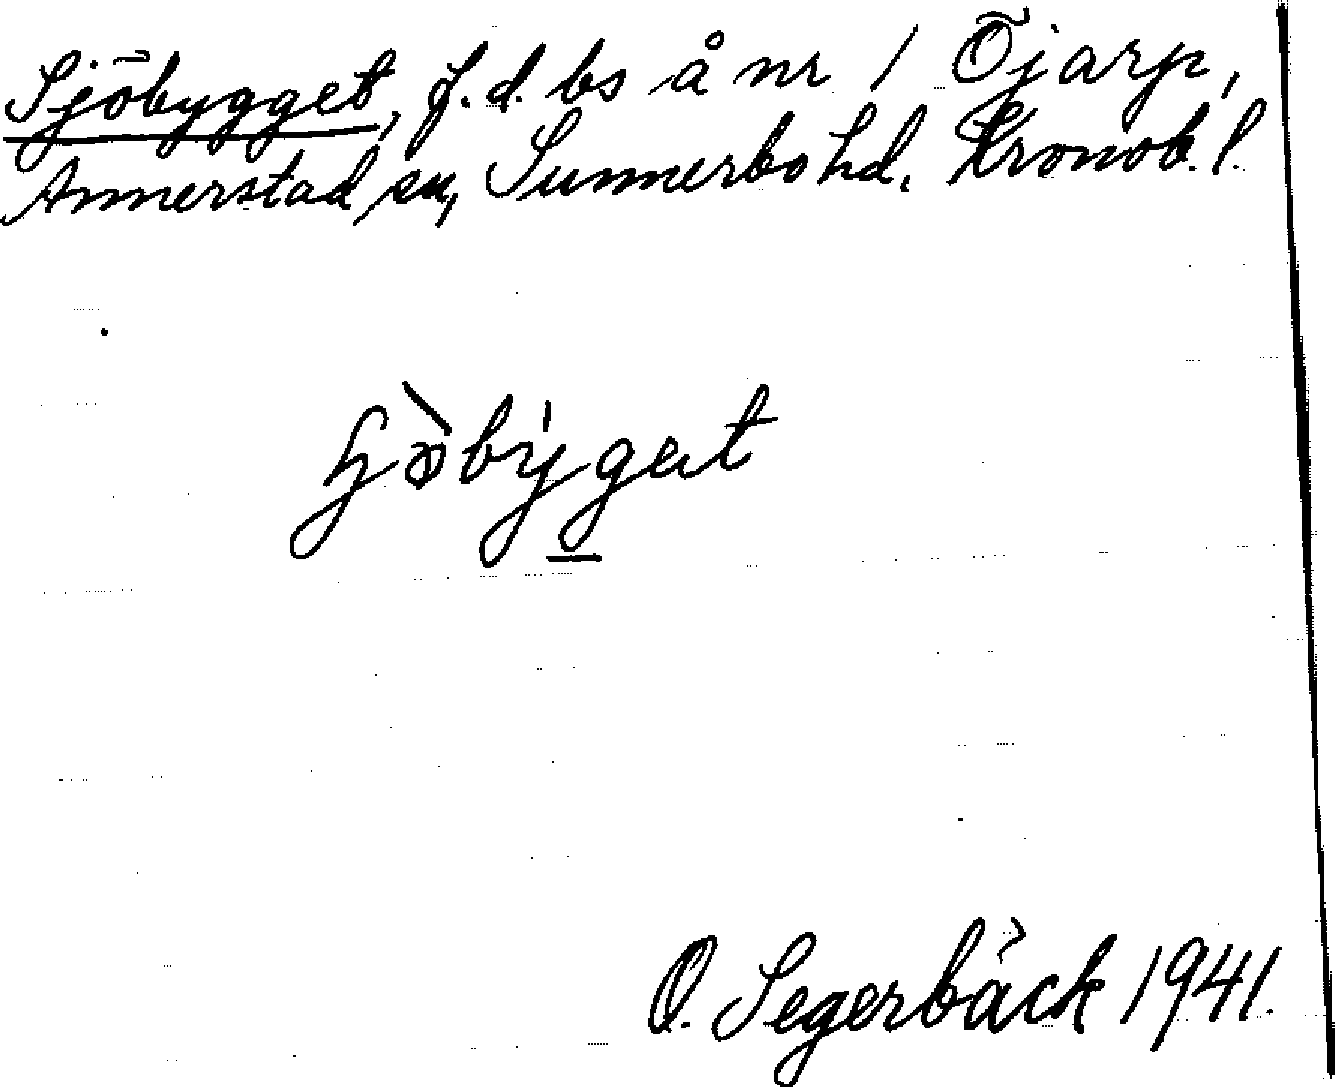 Sjöbygget, f.d. bs å nr 1 Öjarp,
Annerstad sn, Sunnerbo hd. Kronob. l.
O. Segerbäck 1941.